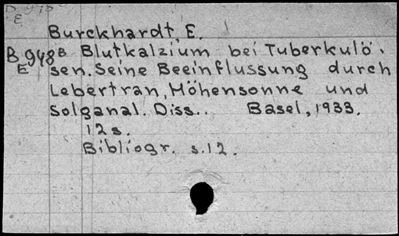 Burckhardt, E.
B 948 B Blutkalzium bei Tuberkulö-
E sen. Seine Beeinflussung durch
Lebertran, Höhensonne und
Solganal. Diss.. Basel, 1933.
12 s.
Bibliogr. s.12.